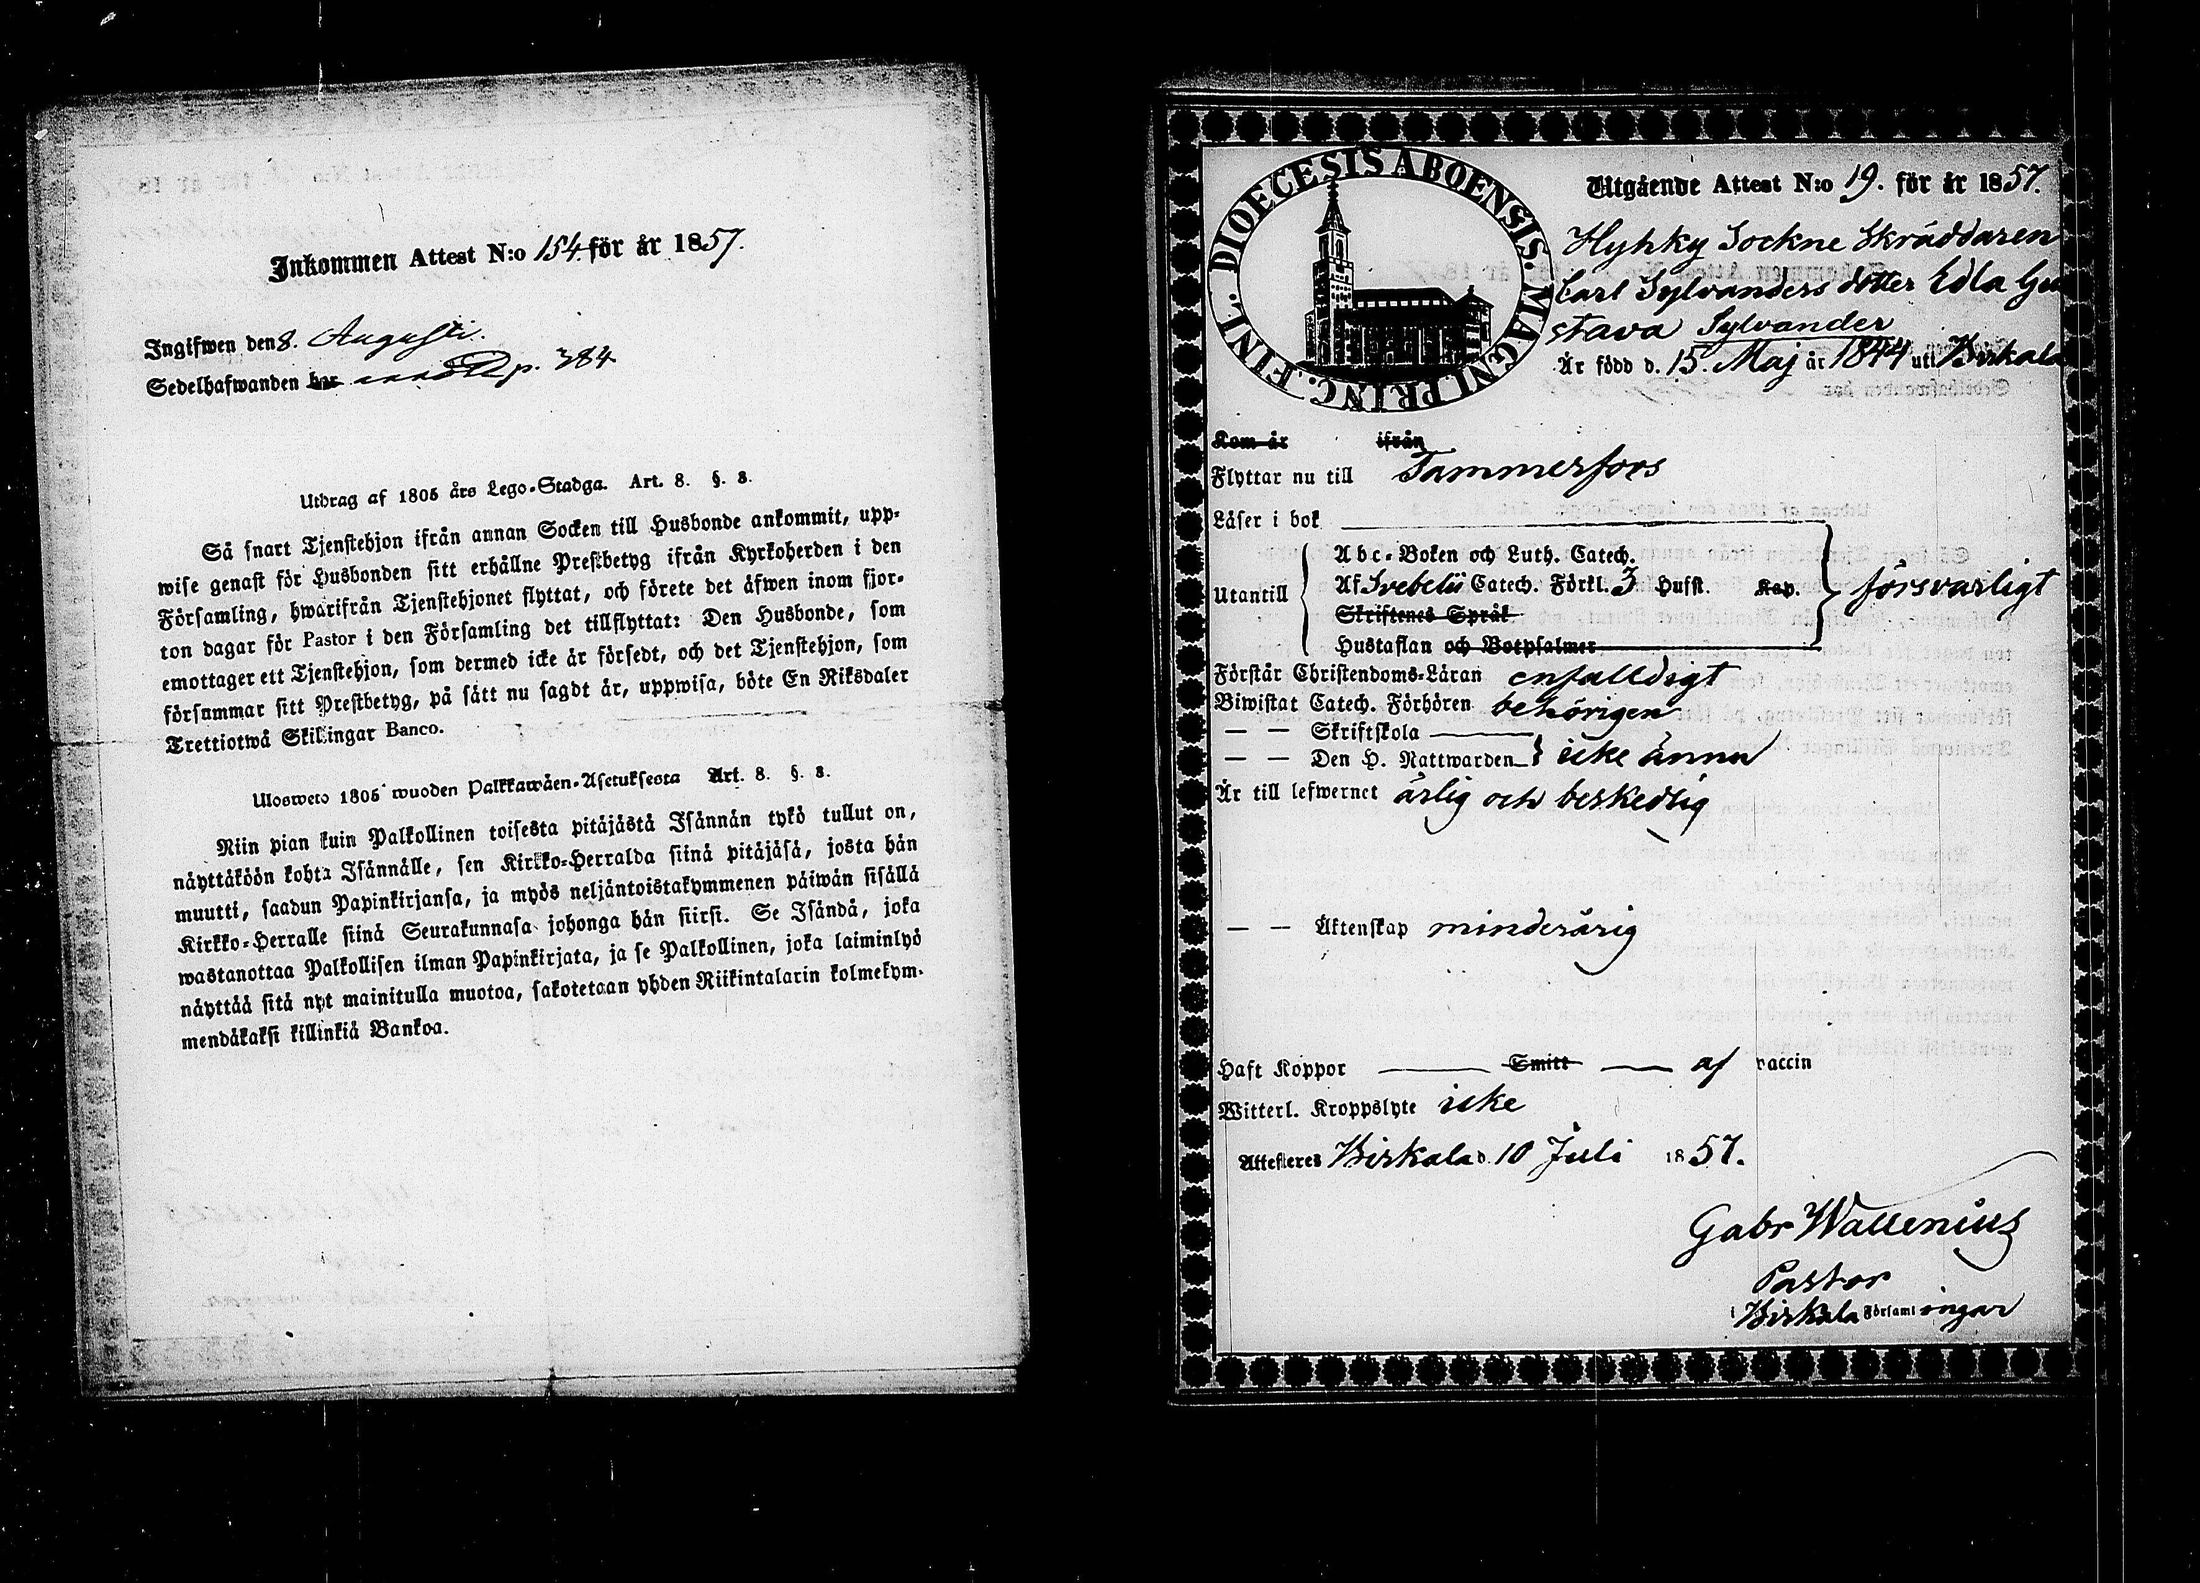 Inkommen Attest N:o 154 för år 1857.
Ingifwen den 8. Augusti.
Sedelhafwanden har p. 384.
Utdrag af 1805 års Lego-Stadga. Art. 8. §. 8.
Så snart Tjenstehjon ifrån annan Socken till Husbonde ankommit, upp-
wise genast för Husbonden sitt erhållne Prestbetyg ifrån Kyrkoherden i den
Församling, hwarifrån Tjenstehjonet flyttat, och förete det äfwen inom fjor-
ton dagar för Pastor i den Församling det tillflyttat: Den Husbonde, som
emottager ett Tjenstehjon, som dermed icke är försedt, och det Tjenstehjon, som
försummar sitt Prestbetyg, på sätt nu sagdt är, uppwisa, böte En Riksdaler
Trettiotwå Skillingar Banco.
Ulosweto 1805 wuoden Palkkawäen-Asetuksesta Art. 8. §. 8.
Niin pian kuin Palkollinen toisesta pitäjästä Isännän tykö tullut on,
näyttäköön kohta Isännälle, sen Kirkko-Herralda siinä pitäjäsä, josta hän
muutti, saadun Papinkirjansa, ja myös neljäntoistakymmenen päiwän sisällä
Kirkko-Herralle siinä Seurakunnasa johonga hän siirsi. Se Isändä, joka
wastanottaa Palkollisen ilman Papinkirjata, ja se Palkollinen, joka laiminlyö
näyttää sitä nyt mainitulla muotoa, sakotetaan yhden Riikintalarin kolmekym-
mendäkaksi killinkiä Bankoa.
DIOECESIS ABOENSIS. MAGNI PRINC. FINL.
Utgående Attest N:o 19. för år 1857.
Hyhky Sockne Skräddaren
Carl Sylvanders dotter Edla Gu
stava Sylvander
Är född d. 15. Maj år 1844 uti Birkala
Kom år ifrån
Flyttar nu till Tammerfors
Läser i bok
Abc-Boken och Luth. Catech.
Utantill Af Svebelii Catech. Förkl. 3 Hufst. Kap. försvarligt
Skriftenes Språk
Hustaflan och Botpsalmer
Förstår Christendoms-Läran enfalldigt
Biwistat Catech. Förhören behörigen
— — Skriftskola
— — Den H. Nattwarden } icke ännu
Är till lefwernet ärlig och beskedlig
— — Äktenskap minderårig
Haft Koppor — Smitt — af vaccin
Witterl. Kroppslyte icke
Attesteres Birkala d. 10 Juli 1857.
Gabr Wallenius
Pastor
i Birkala Församlingar